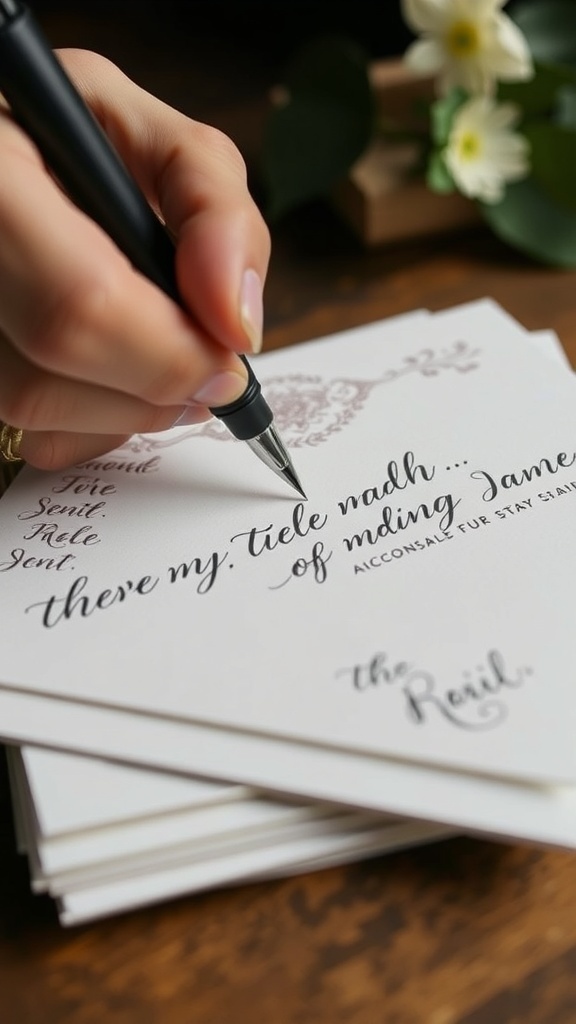 Tire
Senit.
Rale
Jent.
there my. tiele nadh ...
of mding Jame
AICCONSALE FUR STAY STAIR
the
Roiil.